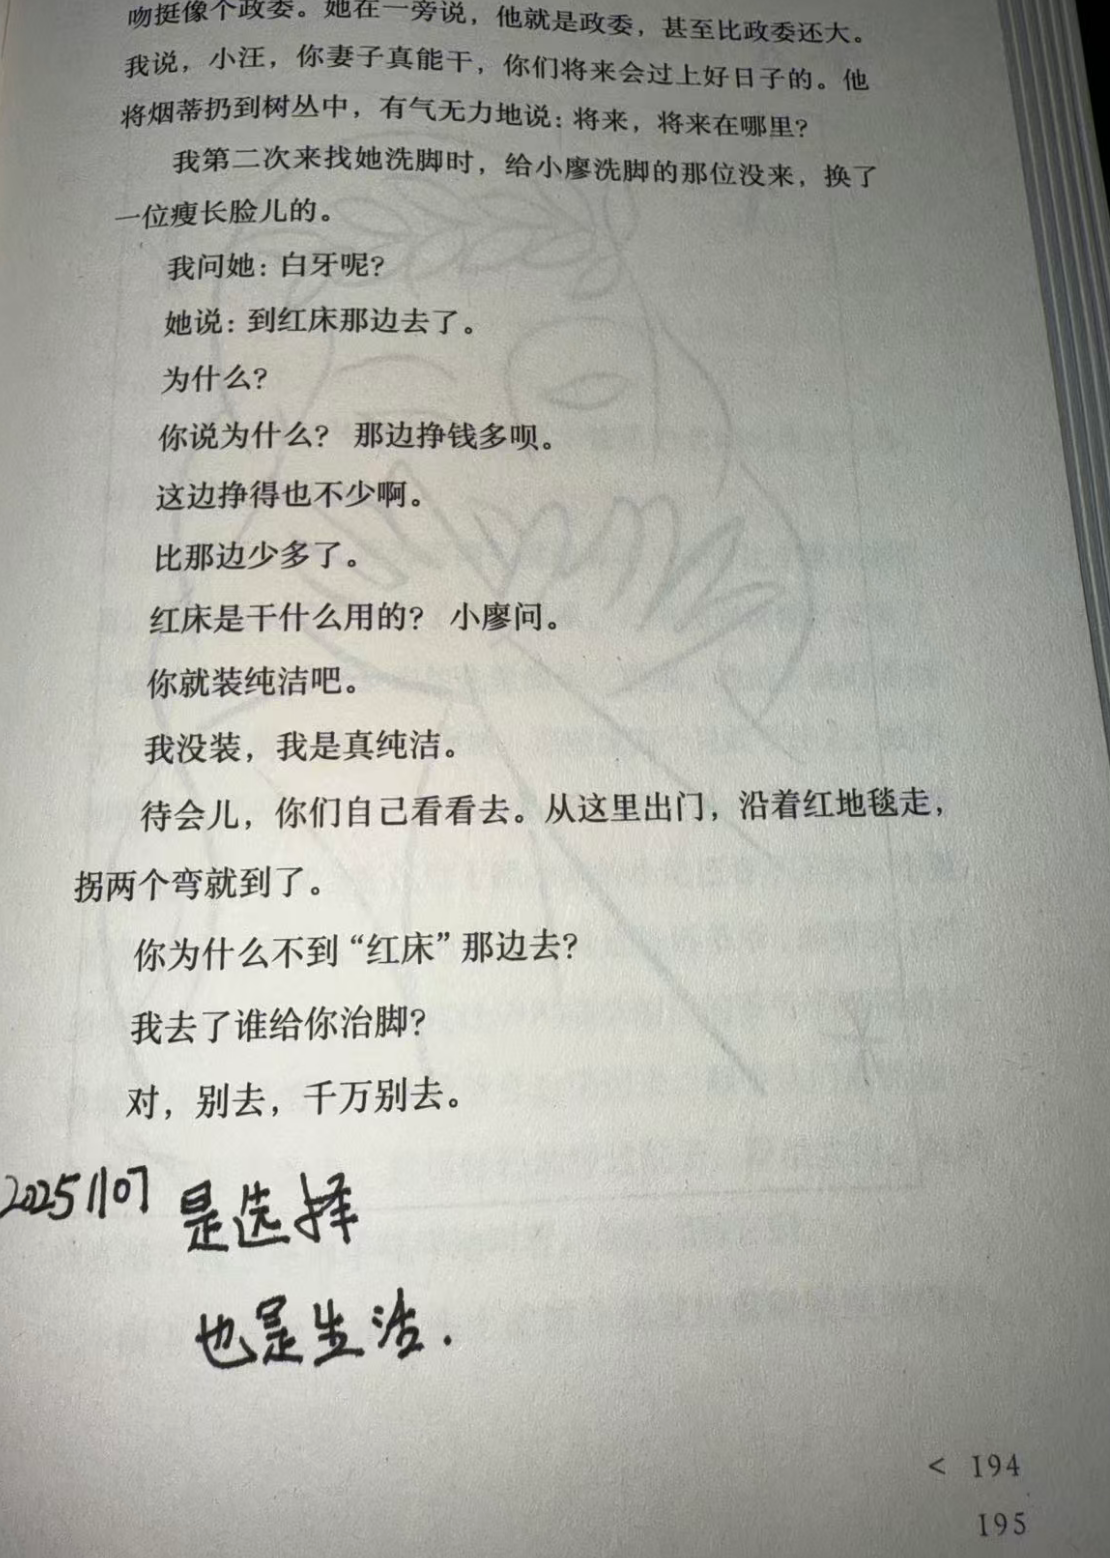 吻挺像个政委。她在一旁说，他就是政委，甚至比政委还大。
我说，小汪，你妻子真能干，你们将来会过上好日子的。他
将烟蒂扔到树丛中，有气无力地说：将来，将来在哪里？
我第二次来找她洗脚时，给小廖洗脚的那位没来，换了
一位瘦长脸儿的。
我问她：白牙呢？
她说：到红床那边去了。
为什么？
你说为什么？ 那边挣钱多呗。
这边挣得也不少啊。
比那边少多了。
红床是干什么用的？ 小廖问。
你就装纯洁吧。
我没装，我是真纯洁。
待会儿，你们自己看看去。从这里出门，沿着红地毯走，
拐两个弯就到了。
你为什么不到“红床”那边去？
我去了谁给你治脚？
对，别去，千万别去。
20251107 是选择
也是生活.
< 194
195